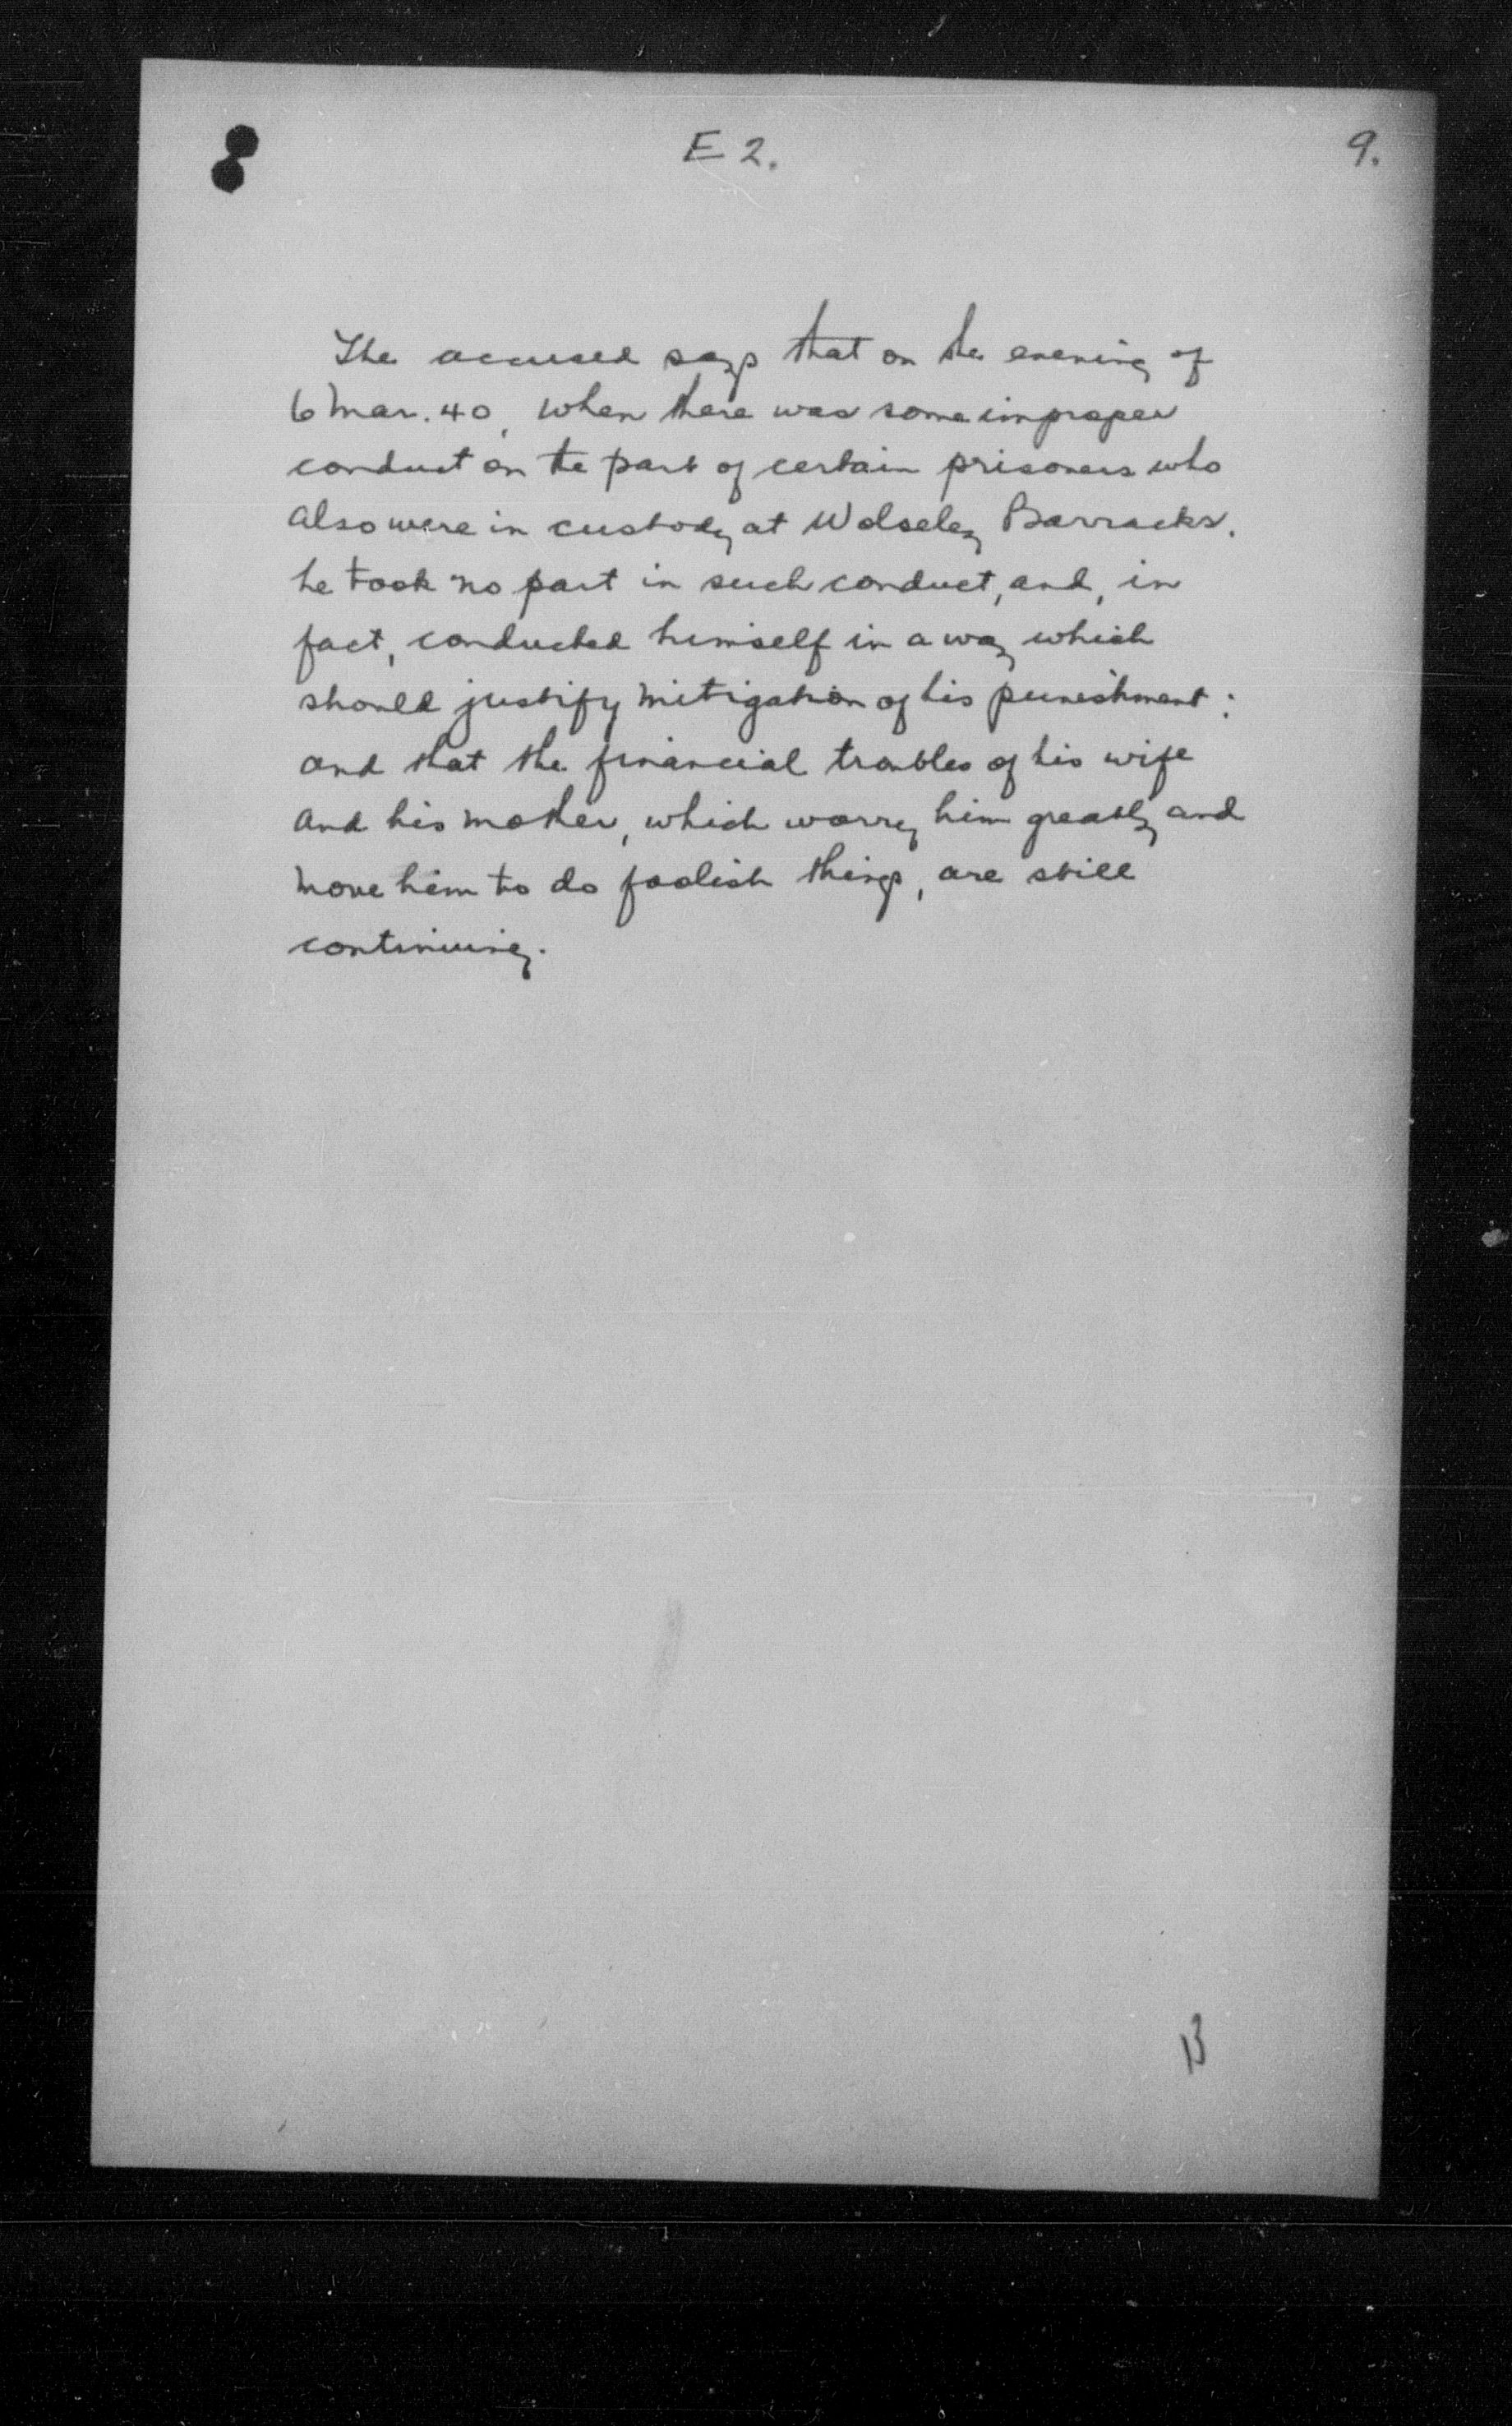 E 2.
9.
The accused says that on the evening of
6 Mar. 40, when there was some improper
conduct on the part of certain prisoners who
also were in custody at Wolseley Barracks,
he took no part in such conduct, and, in
fact, conducted himself in a way which
should justify mitigation of his punishment;
and that the financial troubles of his wife
and his mother, which worry him greatly and
move him to do foolish things, are still
continuing.